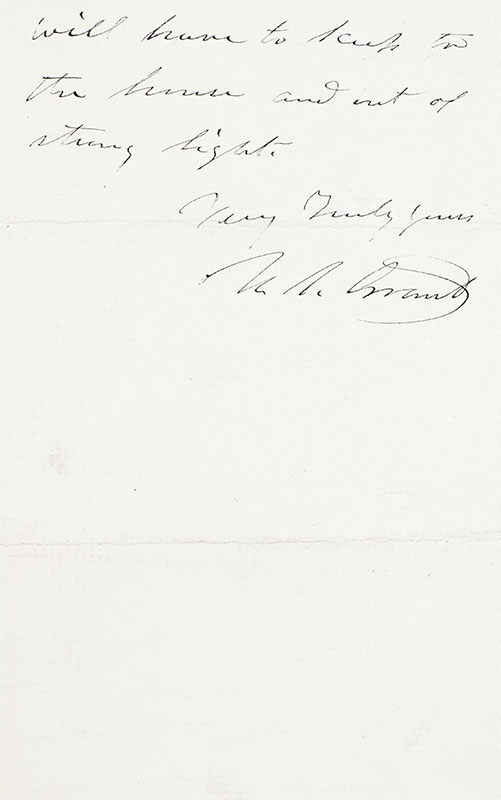 will have to keep to
the house and out of
strong light.
Very Truly yours
U. S. Grant